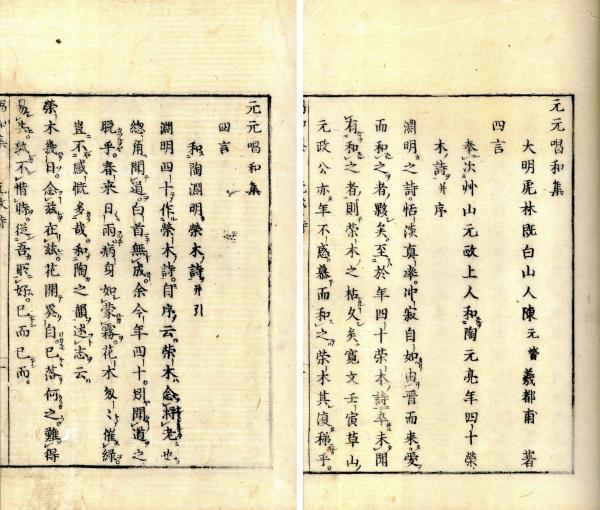 元元唱和集
大明虎林既白山人陳元贇羲都甫 著
四言
奉次艸山元政上人和陶元亮年四十榮
木詩并序
淵明之詩恬淡真率冲寂自如由晉而來愛
而和之者夥矣至於年四十榮木詩卒未聞
有和之者則榮木之枯久矣寛文壬寅草山
元政公亦年不惑慕而和之榮木其復稊乎
元元唱和集
四言
和陶淵明榮木詩并引
淵明四十作榮木詩自序云榮木念將老也
總角聞道白首無成余今年四十矧聞道之
晚乎春來日雨病身如蒙霧花木匆〻催緑
豈不感慨多哉和陶之韻述志云
榮木幾日念茲在茲花開奚自已落何之難得
易失孰不惜時從吾所好已而已而